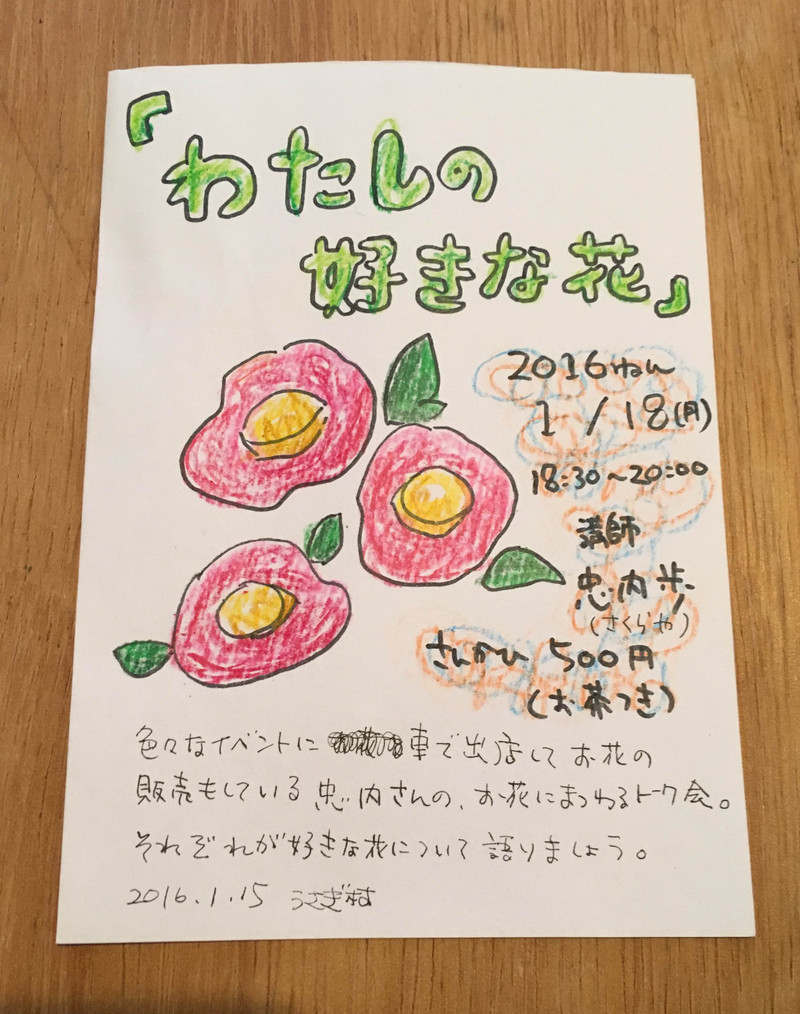 「わたしの
好きな花」
2016ねん
1/18(月)
18:30〜20:00
講師
忠内歩
(さくらや)
さんかひ 500円
(お茶つき)
色々なイベントに 車で出店して お花の
販売もしている 忠内さんの、お花にまつわるトーク会。
それぞれが好きな花について 語りましょう。
2016.1.15 うさぎ村